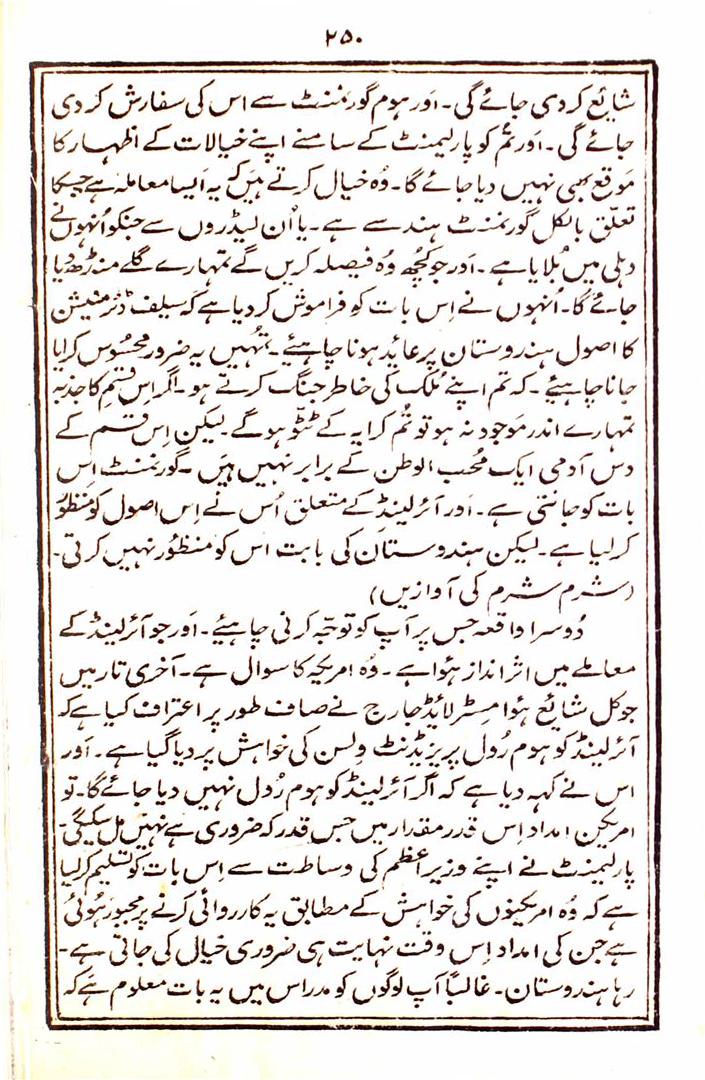 ۲۵۰
شایع کر دی جائے گی۔ اَور ہوم گورنمنٹ سے اس کی سفارش کر دی
جائے گی۔ اَور تُم کو پارلیمنٹ کے سامنے اپنے خیالات کے اظہار کا
مَوقع بھی نہیں دیا جائے گا۔ وُہ خیال کرتے ہَیں کہ یہ اَیسا معاملہ ہے جسکا
تعلّق بالکل گورنمنٹ ہند سے ہے۔ یا اُن لیڈروں سے جنکو اُنہوں نے
دہلی میں بُلایا ہے۔ اَور جو کُچھ وُہ فیصلہ کریں گے تمہارے گلے منڈھ دیا
جائے گا۔ اُنہوں نے اِس بات کو فراموش کر دیا ہے کہ سیلف ڈٹرمنیشن
کا اصول ہندوستان پر عاید ہونا چاہیئے۔ تُہیں یہ ضرور محسُوس کرایا
جانا چاہیئے۔ کہ تم اپنے مُلک کی خاطر جنگ کرتے ہو۔ اگر اِس قِسم کا جذبہ
تمہارے اندر مَوجود نہ ہو تو تُم کرایہ کے ٹٹّو ہو گے۔ لیکن اِس قسم کے
دس آدمی ایک مُحب الوطن کے برابر نہیں ہَیں۔ گورنمنٹ اِس
بات کو جانتی ہے۔ اَور آئرلینڈ کے متعلق اُس نے اِس اصول کو منظُور
کر لیا ہے۔ لیکن ہندوستان کی بابت اس کو منظُور نہیں کرتی۔
(شرم شرم کی آوازیں)
دُوسرا واقعہ جس پر آپ کو توجّہ کرنی چاہیئے۔ اَور جو آئرلینڈ کے
معاملے میں اثر انداز ہُوا ہے۔ وُہ امریکہ کا سوال ہے۔ آخری تار میں
جو کل شایع ہُوا مِسٹر لائڈ جارج نے صاف طور پر اعتراف کیا ہے کہ
آئرلینڈ کو ہوم رُول پریزیڈنٹ ولسن کی خواہش پر دیا گیا ہے۔ اَور
اس نے کہہ دیا ہے کہ اگر آئرلینڈ کو ہوم رُول نہیں دیا جائے گا۔ تو
امریکن امداد اِس قدر مقدار میں جس قدر کہ ضروری ہے نہیں مل سکیگی۔
پارلیمنٹ نے اپنے وزیر اعظم کی وساطت سے اِس بات کو تسلیم کر لیا
ہے کہ وُہ امریکنوں کی خواہش کے مطابق یہ کارروائی کرنے پر مجبور ہُوئی
ہے جن کی امداد اِس وقت نہایت ہی ضروری خیال کی جاتی ہے۔
رہا ہندوستان۔ غالباً آپ لوگوں کو مدراس میں یہ بات معلوم ہے کہ